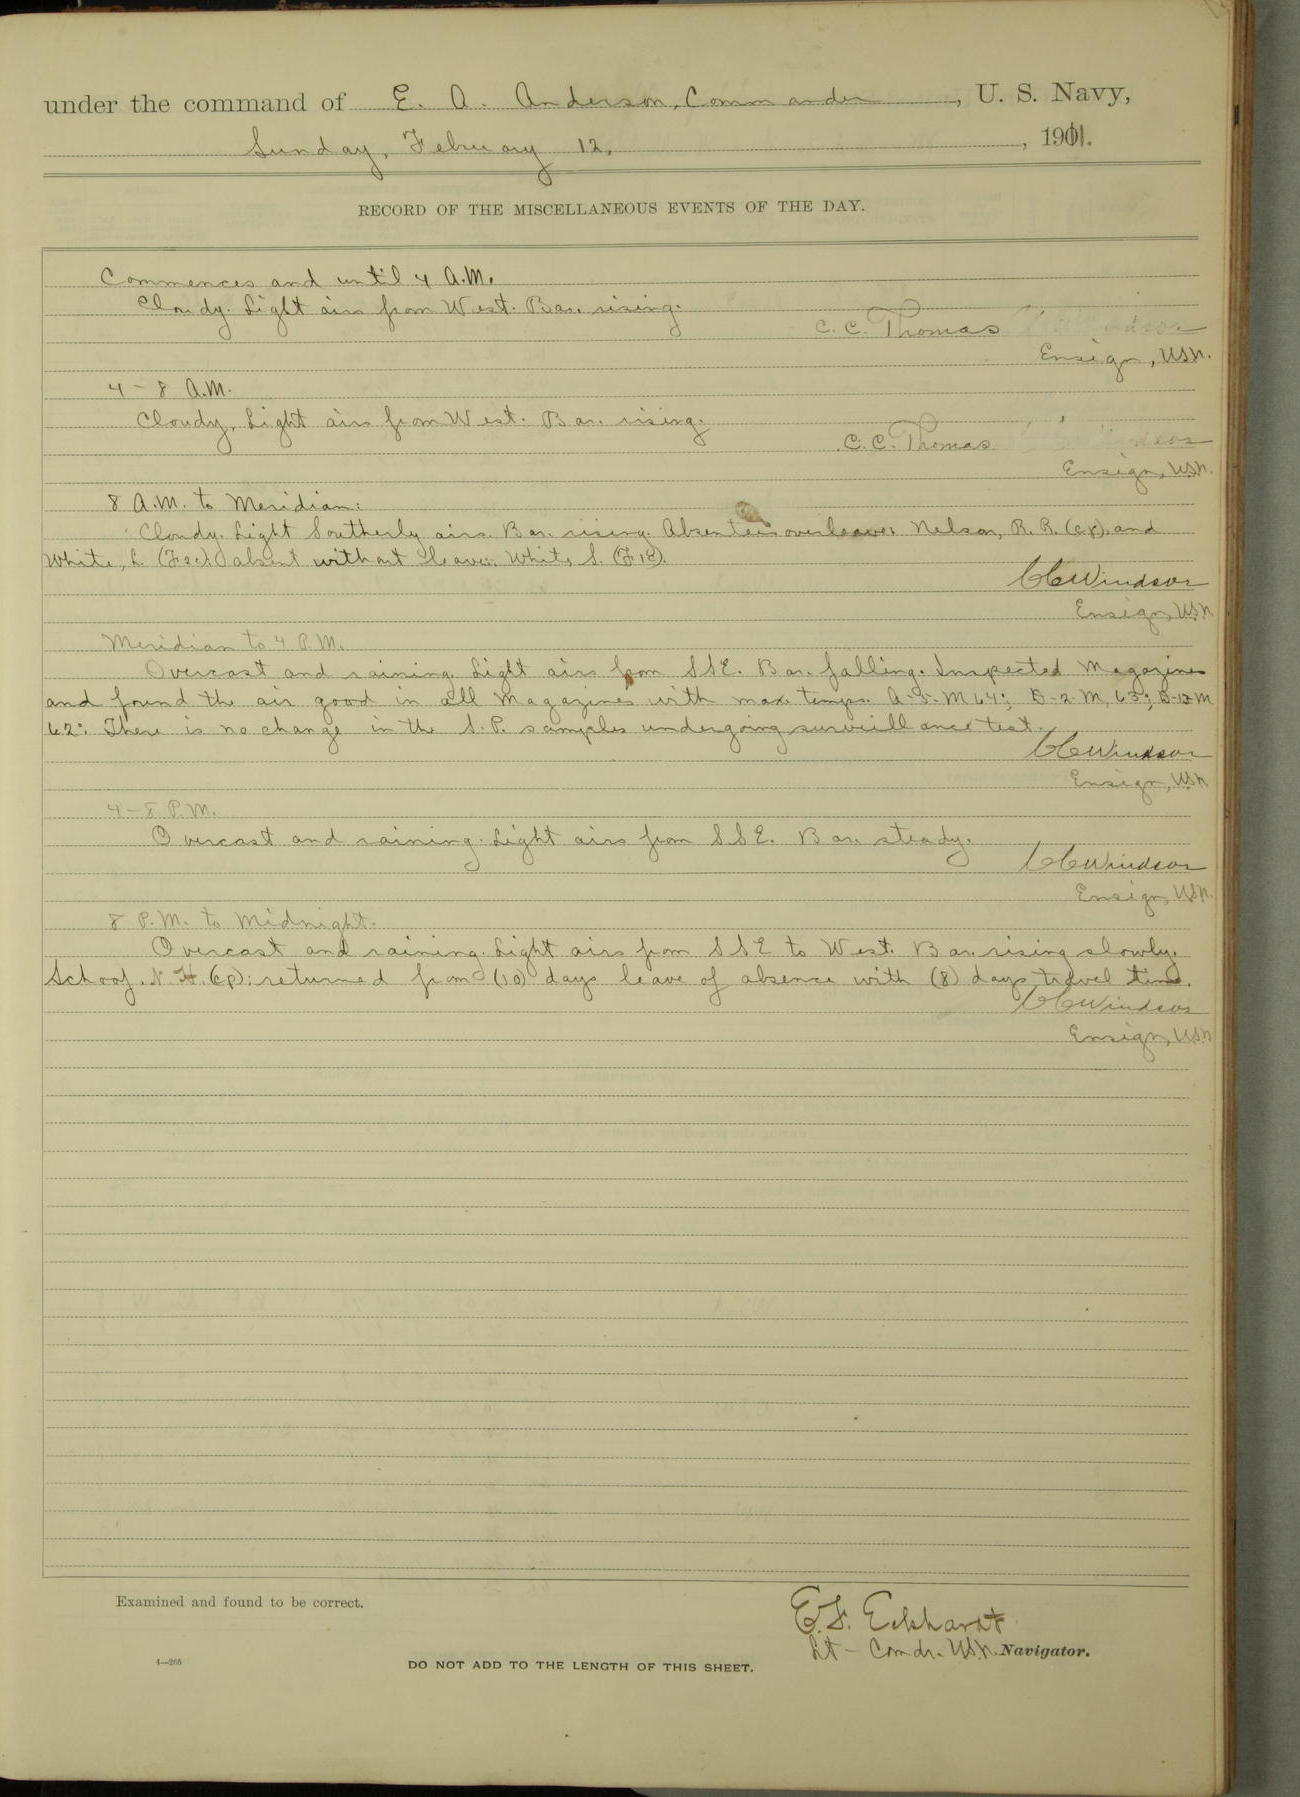 under the command of E. A. Anderson, Commander, U. S. Navy,
Sunday, February 12, , 1911.
RECORD OF THE MISCELLANEOUS EVENTS OF THE DAY.
Commences and until 4 A.M.
Cloudy. Light airs from West. Bar. rising.
C. C. Thomas
Ensign, USN.
4 - 8 A.M.
Cloudy, Light airs from West. Bar. rising.
C. C. Thomas
Ensign, USN.
8 A.M. to Meridian:
Cloudy. Light Southerly airs. Bar. rising. Absentees overleave: Nelson, R. R. (Cp). and
White, L. (F2cl) absent without leave: White, S. (F1c).
CC Windsor
Ensign, USN
Meridian to 4 P.M.
Overcast and raining. Light airs from SSE. Bar. falling. Inspected Magazines
and found the air good in all Magazines with max. temps. A-5-M 64°; D-2-M, 63°; D-12-M
62° There is no change in the S.P. samples undergoing surveillance test.
CC Windsor
Ensign, USN
4 - 8 P.M.
Overcast and raining. Light airs from SSE. Bar. steady.
CC Windsor
Ensign, USN.
8 P.M. to Midnight.
Overcast and raining. Light airs from SSE to West. Bar. rising slowly.
Schoof. N. H. (Cp): returned from (10) days leave of absence with (8) days travel time.
CC Windsor
Ensign, USN
Examined and found to be correct.
E. F. Eckhardt
Lt - Comdr. USN. Navigator.
4—265
DO NOT ADD TO THE LENGTH OF THIS SHEET.